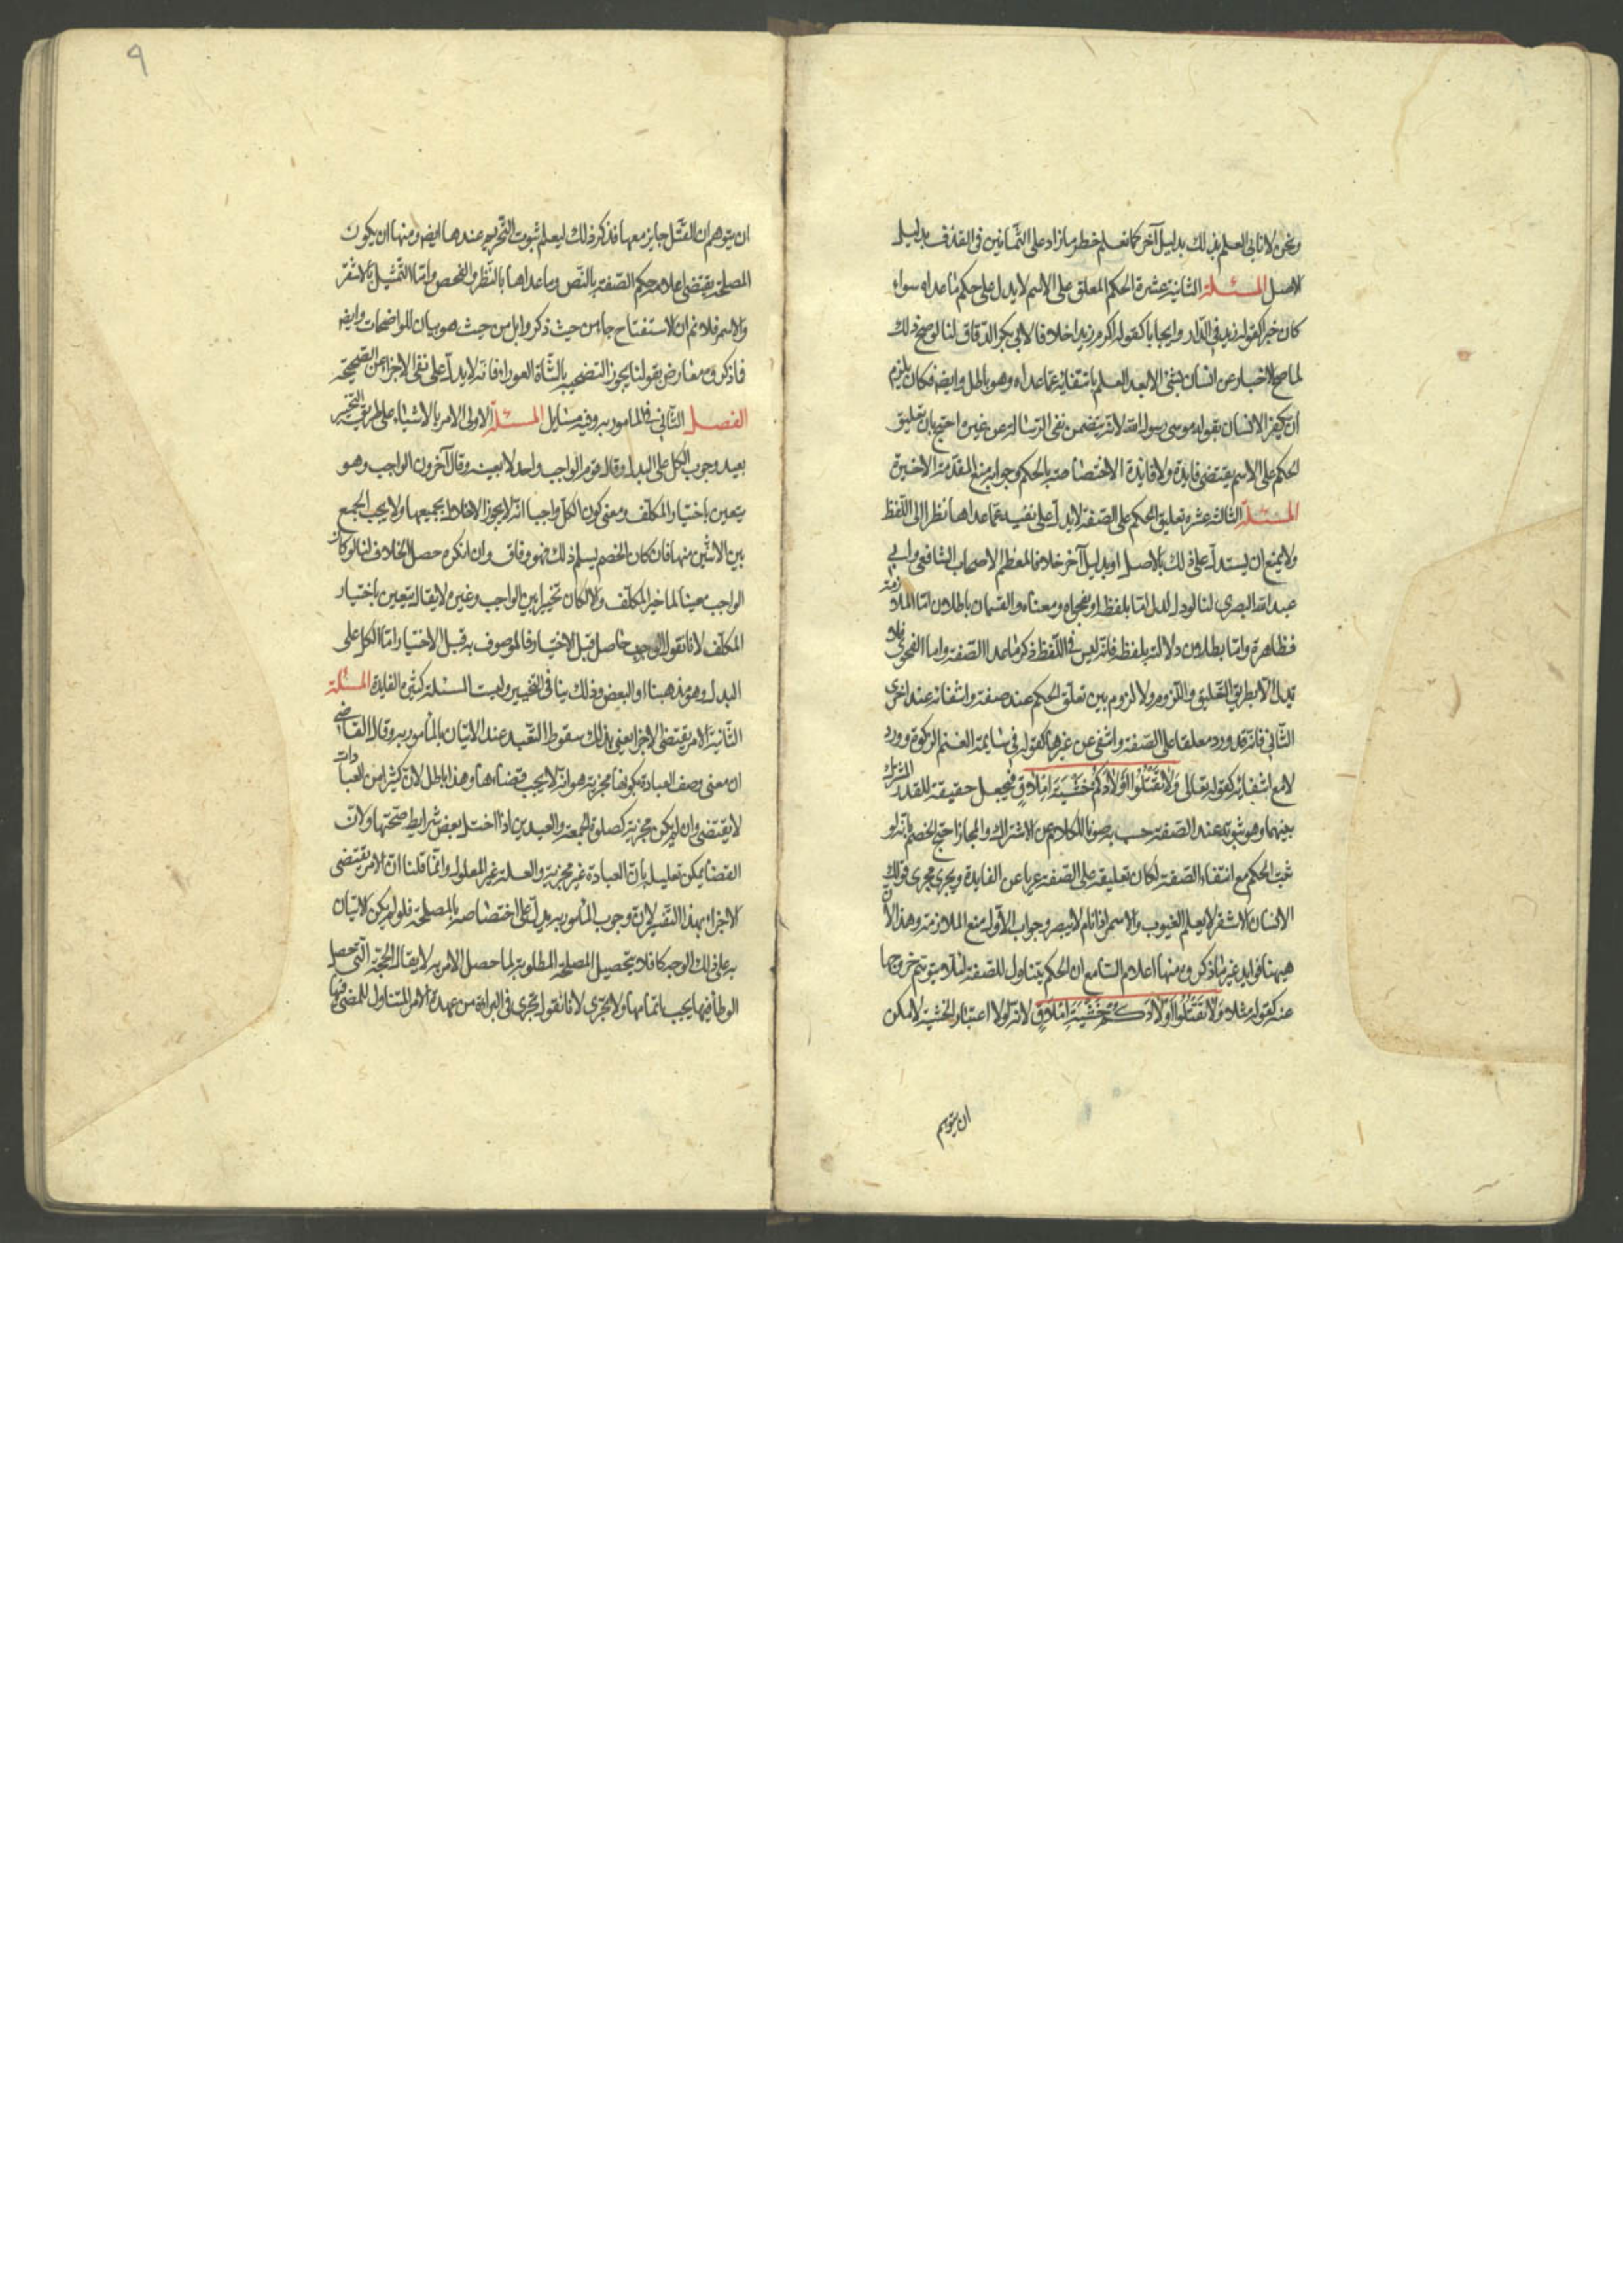 ونحن لا نأبى العلم بذلك بدليل آخر كما نعلم حظر ما زاد على الثمانين فى القذف بدليل
الاصل المسئلة الثانية عشرة الحكم المعلق على الاسم لا يدل على حكم ما عداه سواء
كان خبرا كقوله زيد فى الدار وايجابا كقوله اكرم زيدا خلافا لابى بكر الدقاق لنا لو صح ذلك
لما صح الاخبار عن انسان بشئ الا بعد العلم بانتفائه عما عداه وهو باطل وايضه فكان يلزم
ان يكفر الانسان بقوله موسى رسول الله لانه يتضمن نفى الرسالة عن غيره احتج بان تعليق
الحكم على الاسم يقتضى فايدة ولا فائدة الا اختصاصه بالحكم وجوابه منع المقدمة الاخيرة
المسئلة الثالثة عشره تعليق الحكم على الصفة لا يدل على نفيه عما عداها نظرا الى اللفظ
ولا يمنع ان يستدل على ذلك بالاصل او بدليل آخر خلافا لمعظم الاصحاب الشافعى وابى
عبد الله البصرى لنا لو دل لدل اما بلفظه او بفحواه ومعناه والقسمان باطلان اما الملازمة
فظاهرة واما بطلان دلالته بلفظه فلانه ليس فى اللفظ ذكر ما عدا الصفة واما الفحوى فلا
تدل الا بطريق التعليق واللزوم ولا لزوم بين تعلق الحكم عند صفة وانتفائه عند اخرى
الثانى فانه قد ورد معلقا على الصفة وانتفى عن غيرها كقوله فى سايمة الغنم الزكوة وورد
لا مع انتفائه كقوله تعالى وَلَا تَقْتُلُوا أَوْلَادَكُمْ خَشْيَةَ إِمْلَاقٍ فيجعل حقيقة للقدر المشترك
بينهما وهو ثبوته عند الصفة حسب صونا للكلام عن الاشتراك والمجاز احتج الخصم بانه لو
ثبت الحكم مع انتفاء الصفة لكان تعليقه على الصفة عريا عن الفايدة ويجرى مجرى قولك
الانسان الاشقر لا يعلم الغيوب والاسمر اذا نام لا يبصر وجواب الاول منع الملازمة وهذا لان
هيهنا فوايد غير ما ذكروه منها اعلام السامع ان الحكم يتناول للصفة لئلا يتوهم خروجها
عنه كقوله مثلا وَلَا تَقْتُلُوا أَوْلَادَكُمْ خَشْيَةَ إِمْلَاقٍ لانه لولا اعتبار الخشية لامكن
ان يتوهم
٩
ان يتوهم ان القتل جايز معها فذكر ذلك ليعلم ثبوت التحريم عندها ايضه ومنها ان يكون
المصلحة يقتضى اعلام حكم الصفة بالنص وما عداها بالنظر والفحص واما التمثيل بالاشقر
والاسمر فلا نم ان الاستفتاح جاء من حيث ذكروا بل من حيث هو بيان للواضحات وايضه
فما ذكروه معارض بقولنا يجوز التضحية بالشاة العوراء فانه لا يدل على نفى الاجزاء عن الصحيحة
الفصل الثانى فى المامور به وفيه مسايل المسئلة الاولى الامر بالاشياء على طريق التخير
يفيد وجوب الكل على البدل وقال قوم الواجب واحد لا بعينه وقال آخرون الواجب وهو
يتعين باختيار المكلف ومعنى كون الكل واجبا انه لا يجوز الاخلال بجميعها ولا يجب الجمع
بين الاثنين منها فان كان الخصم يسلم ذلك فهو وفاق وان انكره حصل الخلاف لنا لو كان
الواجب معينا لما خير المكلف والا لكان تخييرا بين الواجب وغيره لا يقال يتعين باختيار
المكلف لانا نقول الوجوب حاصل قبل الاختيار فالموصوف به قبل الاختيار اما الكل على
البدل وهو مذهبنا او البعض وذلك ينافى التخيير وليست المسئلة كثيرة الفايدة المسئلة
الثانية الامر يقتضى الاجزاء يعنى بذلك سقوط التعبد عند الاتيان بالمامور به وقال القاضى
ان معنى وصف العبادة بكونها مجزية هو انه لا يجب قضاءها وهذا باطل لان كثيرا من العبادات
لا يقتضى وان لم يكن مجزية كصلوة الجمعة والعيدين اذا اختل بعض شرايط صحتها ولان
القضا يمكن تعليله بان العبادة غير مجزية والعلة غير المعلول وانما قلنا ان الامر يقتضى
الاجزاء بهذا التفسير لان وجوب المامور به يدل على اختصاصه بالمصلحة فلو لم يكن الاتيان
به على ذلك الوجه كافلا بتحصيل المصلحة المطلوبة لما حصل الامر به لا يقال الحجة التى حصل
الوطأ فيها يجب اتمامها ولا يجزى لانا نقول يجزى فى البراءة من عهدة الامر المتناول للمضى فيها